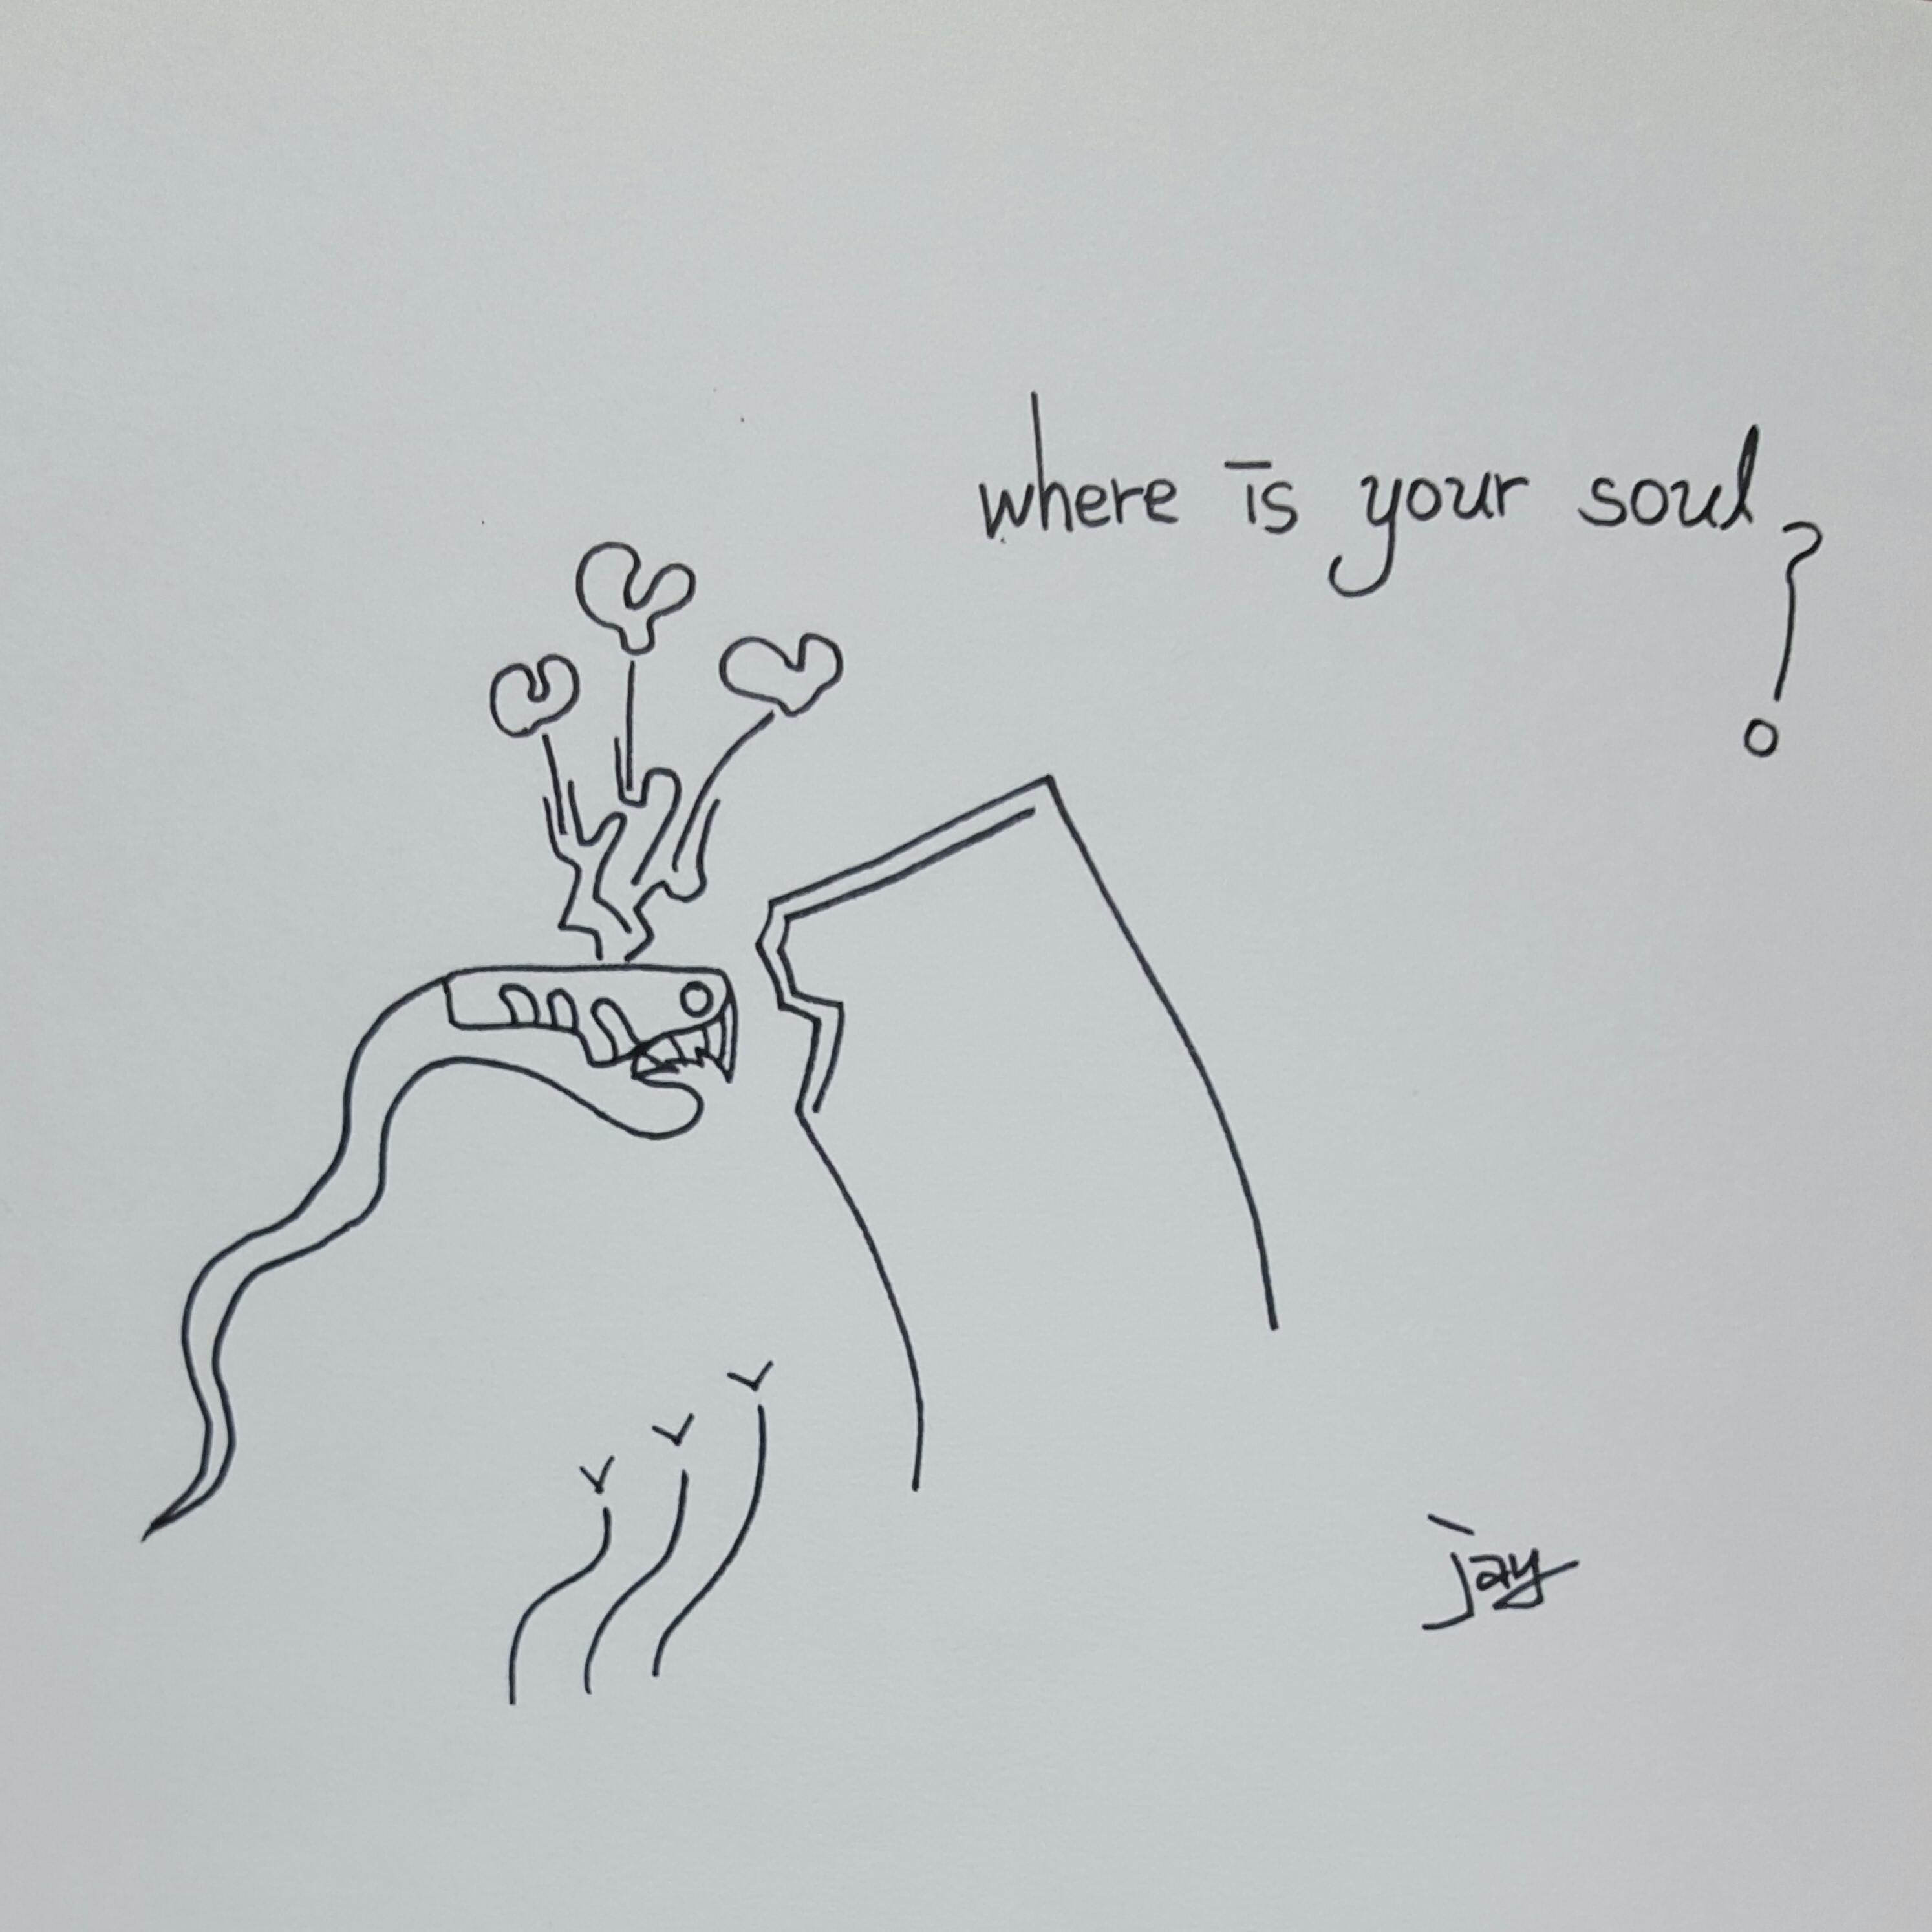 where is your soul?
jay